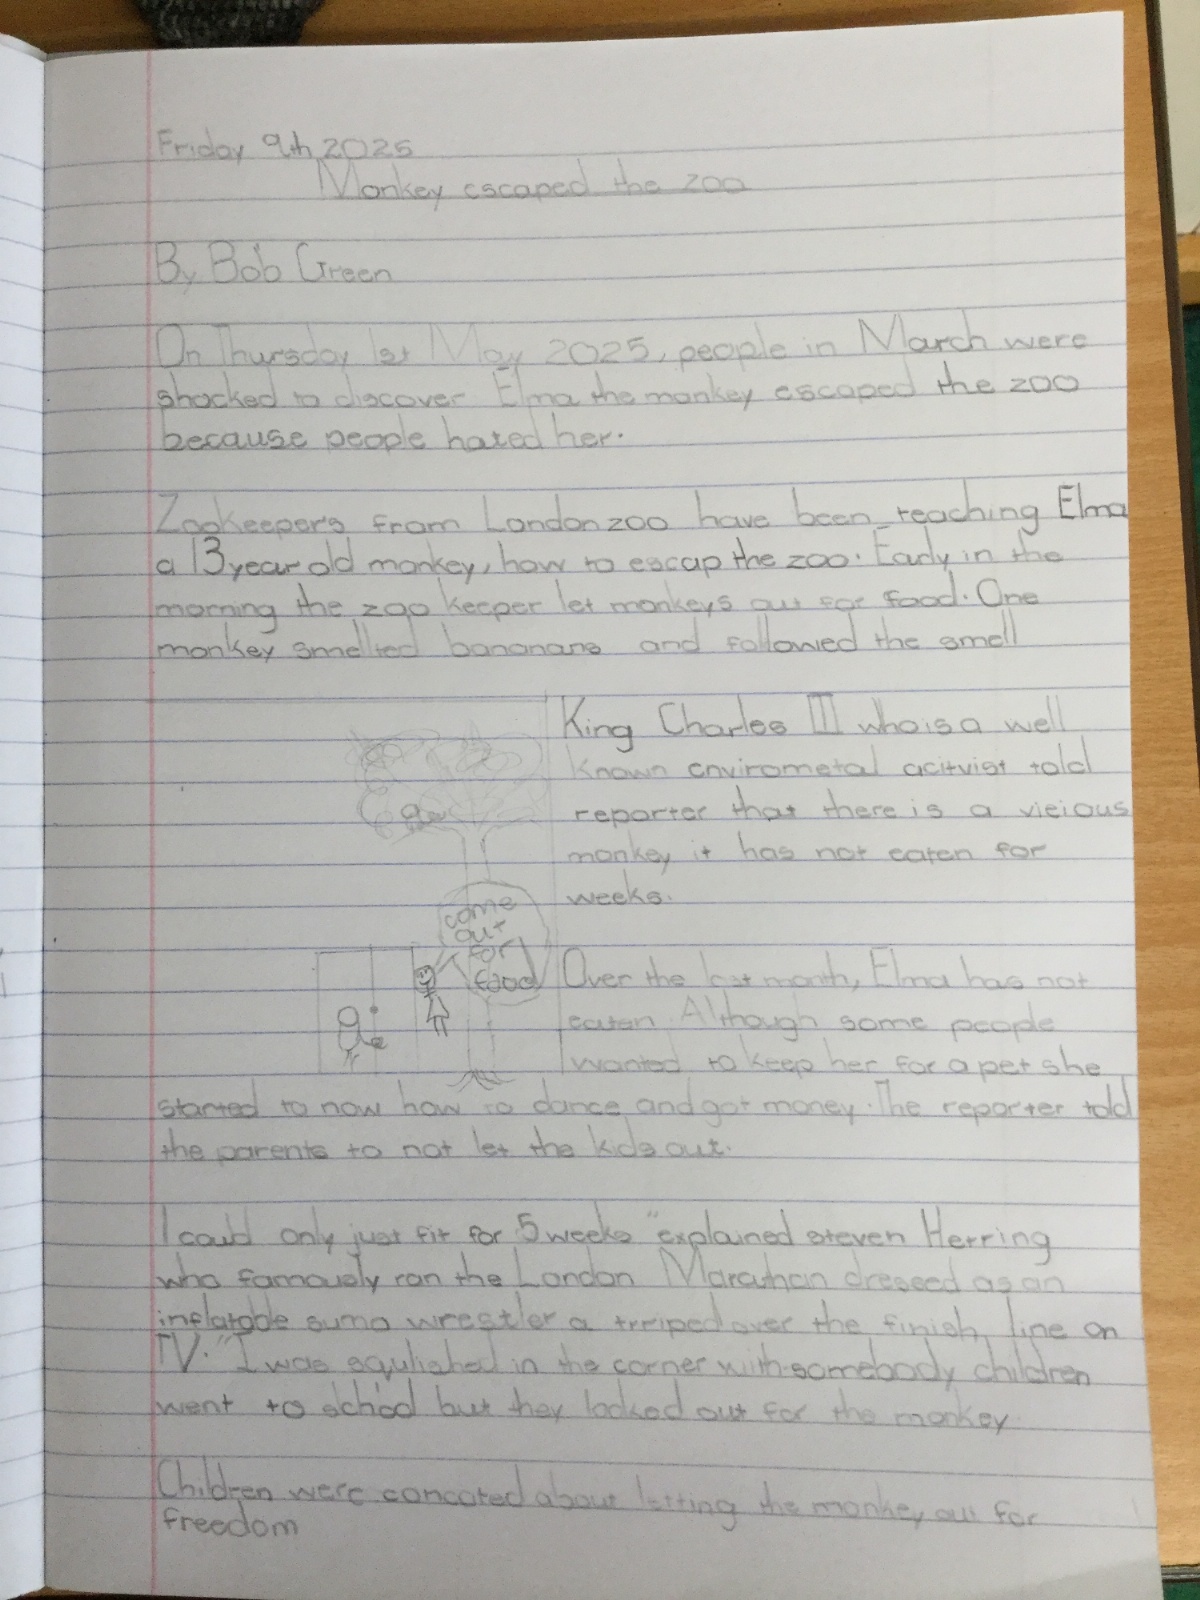 Friday 9th 2025
Monkey escaped the zoo
By Bob Green
On Thursday 1st May 2025, people in March were
shocked to discover Elma the monkey escaped the zoo
because people hated her.
Zookeepers from London zoo have been reaching Elma
a 13 year old monkey, how to escap the zoo. Early in the
morning the zoo keeper let monkeys out for food. One
monkey smelled bananans and followed the smell
King Charles III who is a well
known envirometal acitvist told
reporter that there is a vicious
monkey it has not eaten for
weeks.
come
out
for
food
Over the last month, Elma has not
eaten. Although some people
wanted to keep her for a pet she
started to now how to dance and got money. The reporter told
the parents to not let the kids out.
I could only just fit for 5 weeks "explained steven Herring
who famously ran the London Marathan dressed as an
inflatable sumo wrestler a trriped over the finish line on
TV. "I was squlished in the corner with somebody children
went to school but they locked out for the monkey
Children were concated about letting the monkey out for
freedom